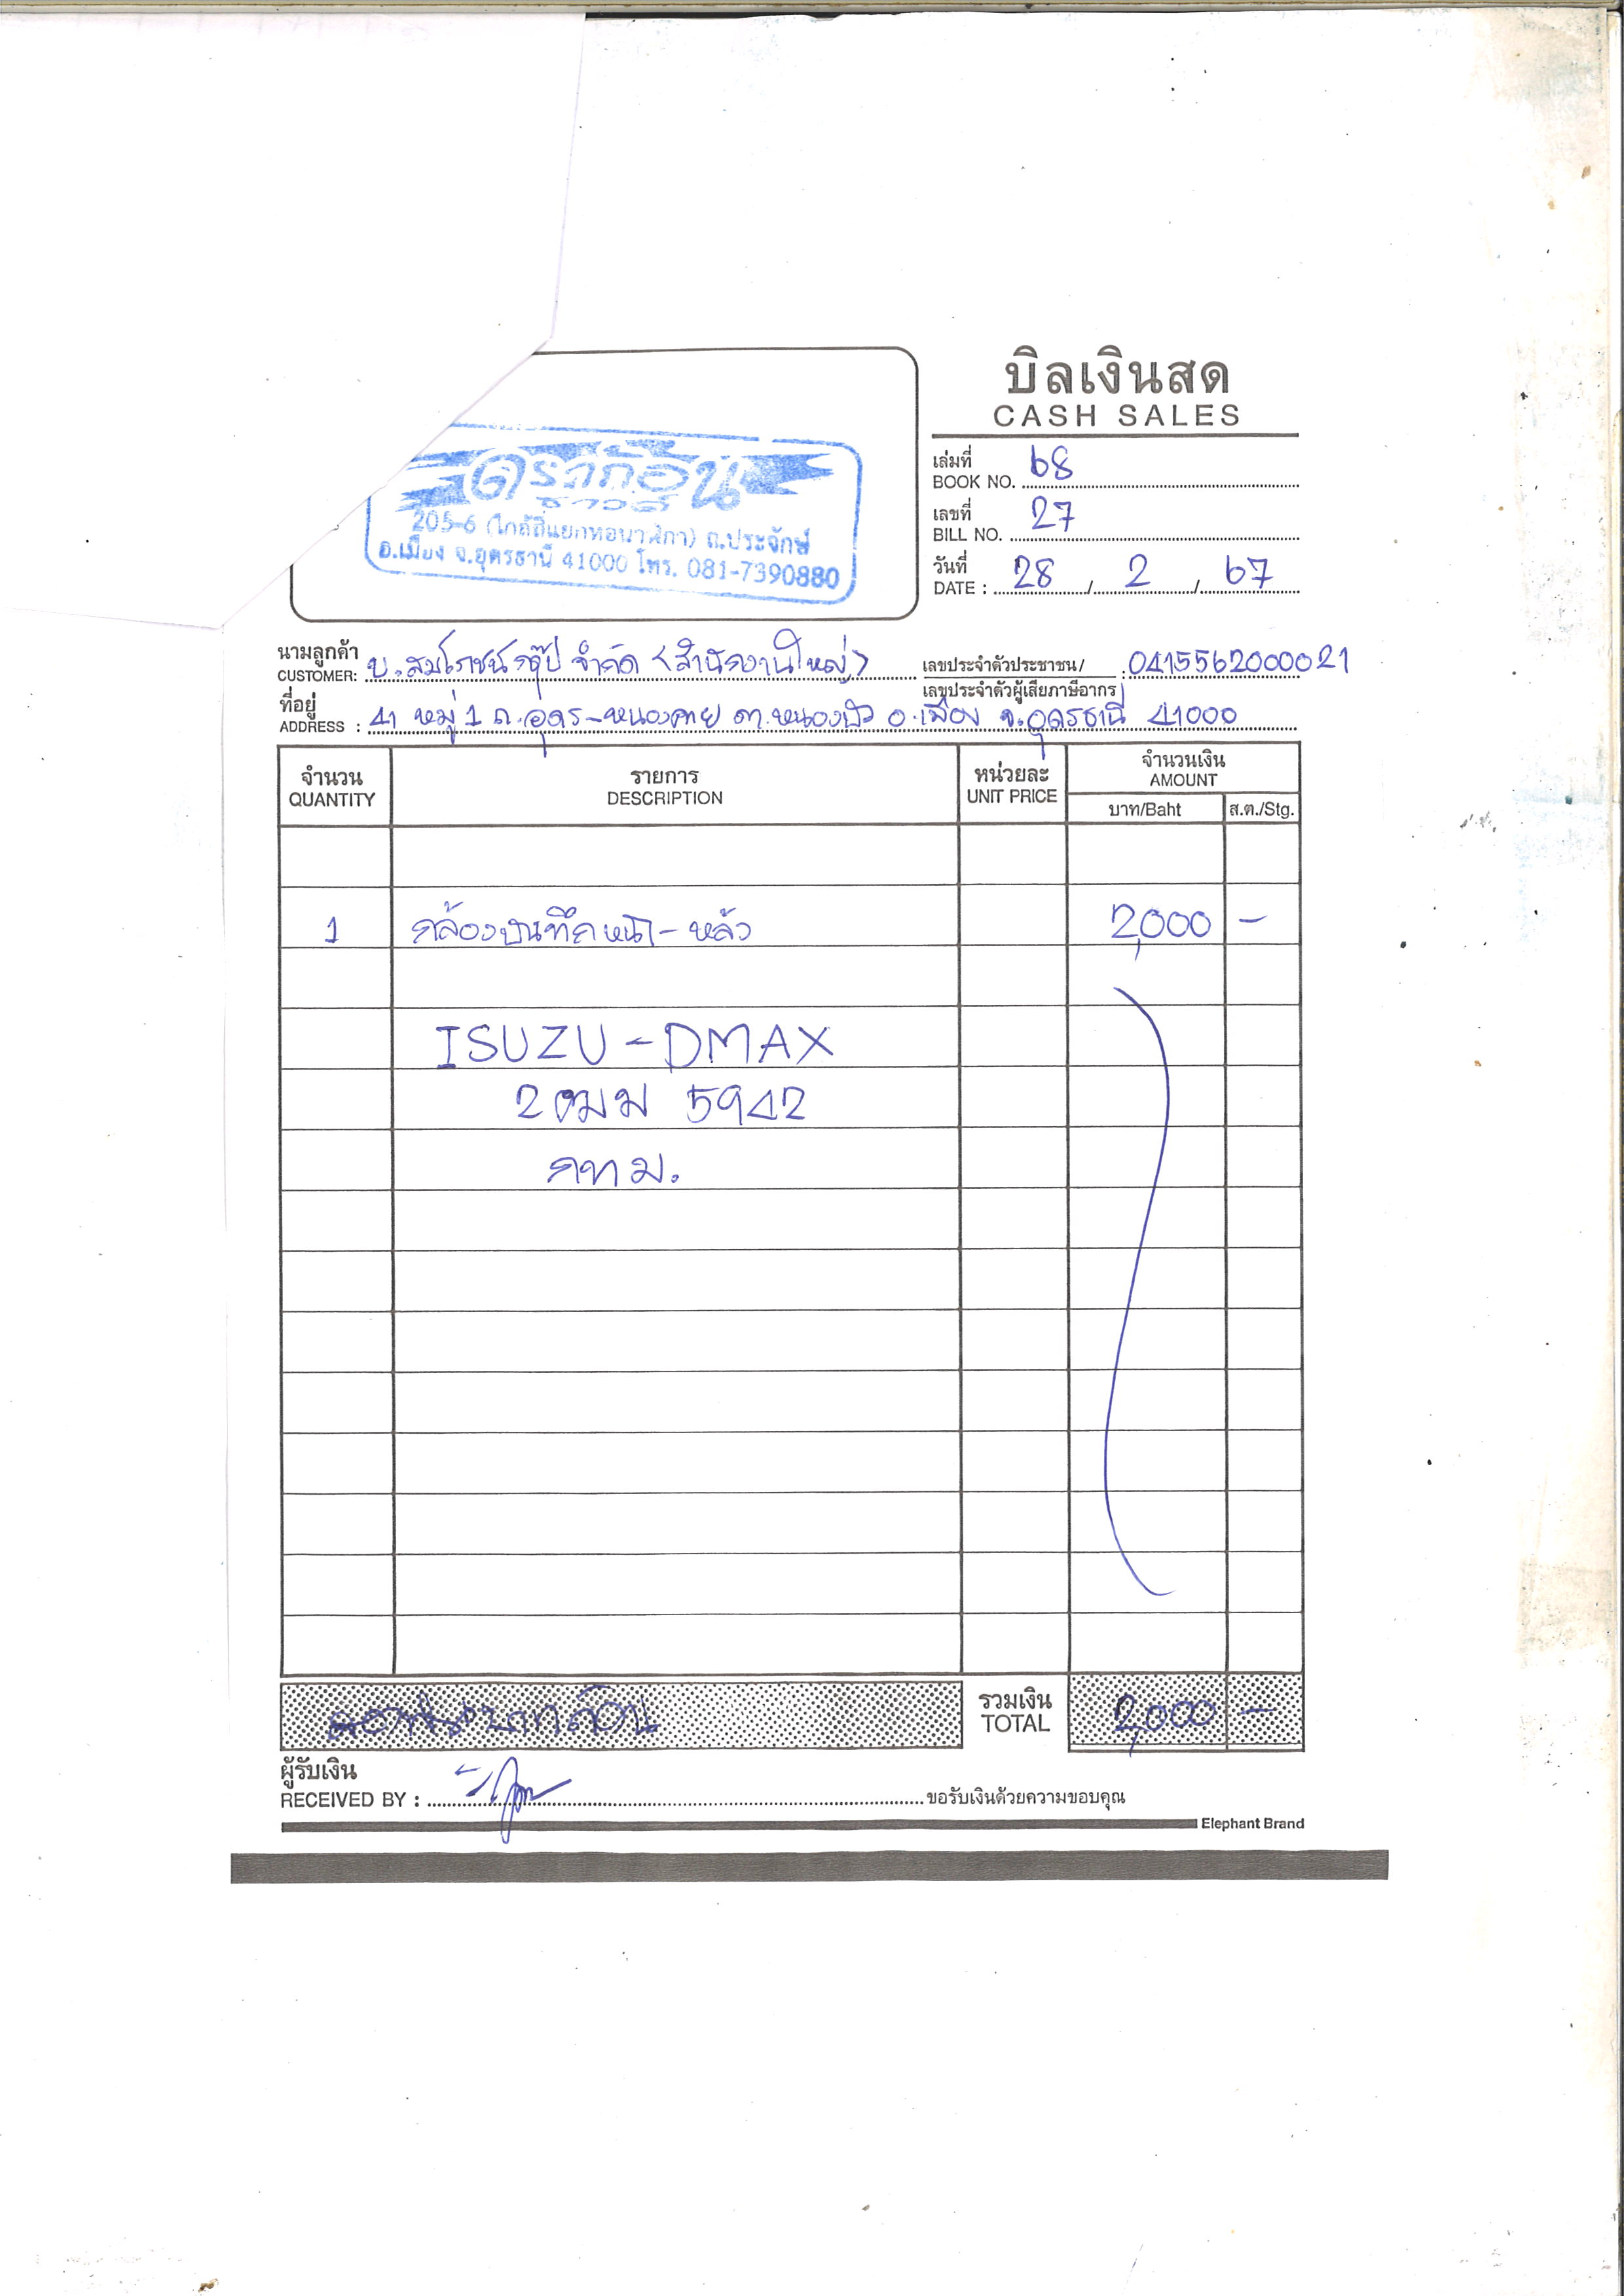 บิลเงินสด
CASH SALES
ดราก้อน
205-6 (ใกล้สี่แยกหอนาฬิกา) ถ.ประจักษ์
อ.เมือง จ.อุดรธานี 41000 โทร. 081-7390880
เล่มที่ BOOK NO. 68
เลขที่ BILL NO. 27
วันที่ DATE : 28 / 2 / 67
นามลูกค้า CUSTOMER: บ.สมโภชน์กรุ๊ป จำกัด (สำนักงานใหญ่) เลขประจำตัวประชาชน/ เลขประจำตัวผู้เสียภาษีอากร : 0415562000021
ที่อยู่ ADDRESS : 41 หมู่ 1 ถ.อุดร-หนองคาย ต.หนองบัว อ.เมือง จ.อุดรธานี 41000
จำนวน QUANTITY รายการ DESCRIPTION หน่วยละ UNIT PRICE จำนวนเงิน AMOUNT
บาท/Baht ส.ต./Stg.
1 กล้องบันทึกหน้า-หลัง 2,000 -
ISUZU-DMAX
2ฒม 5942
กทม.
สองพันบาทถ้วน รวมเงิน TOTAL 2,000 -
ผู้รับเงิน
RECEIVED BY : ขอรับเงินด้วยความขอบคุณ
Elephant Brand